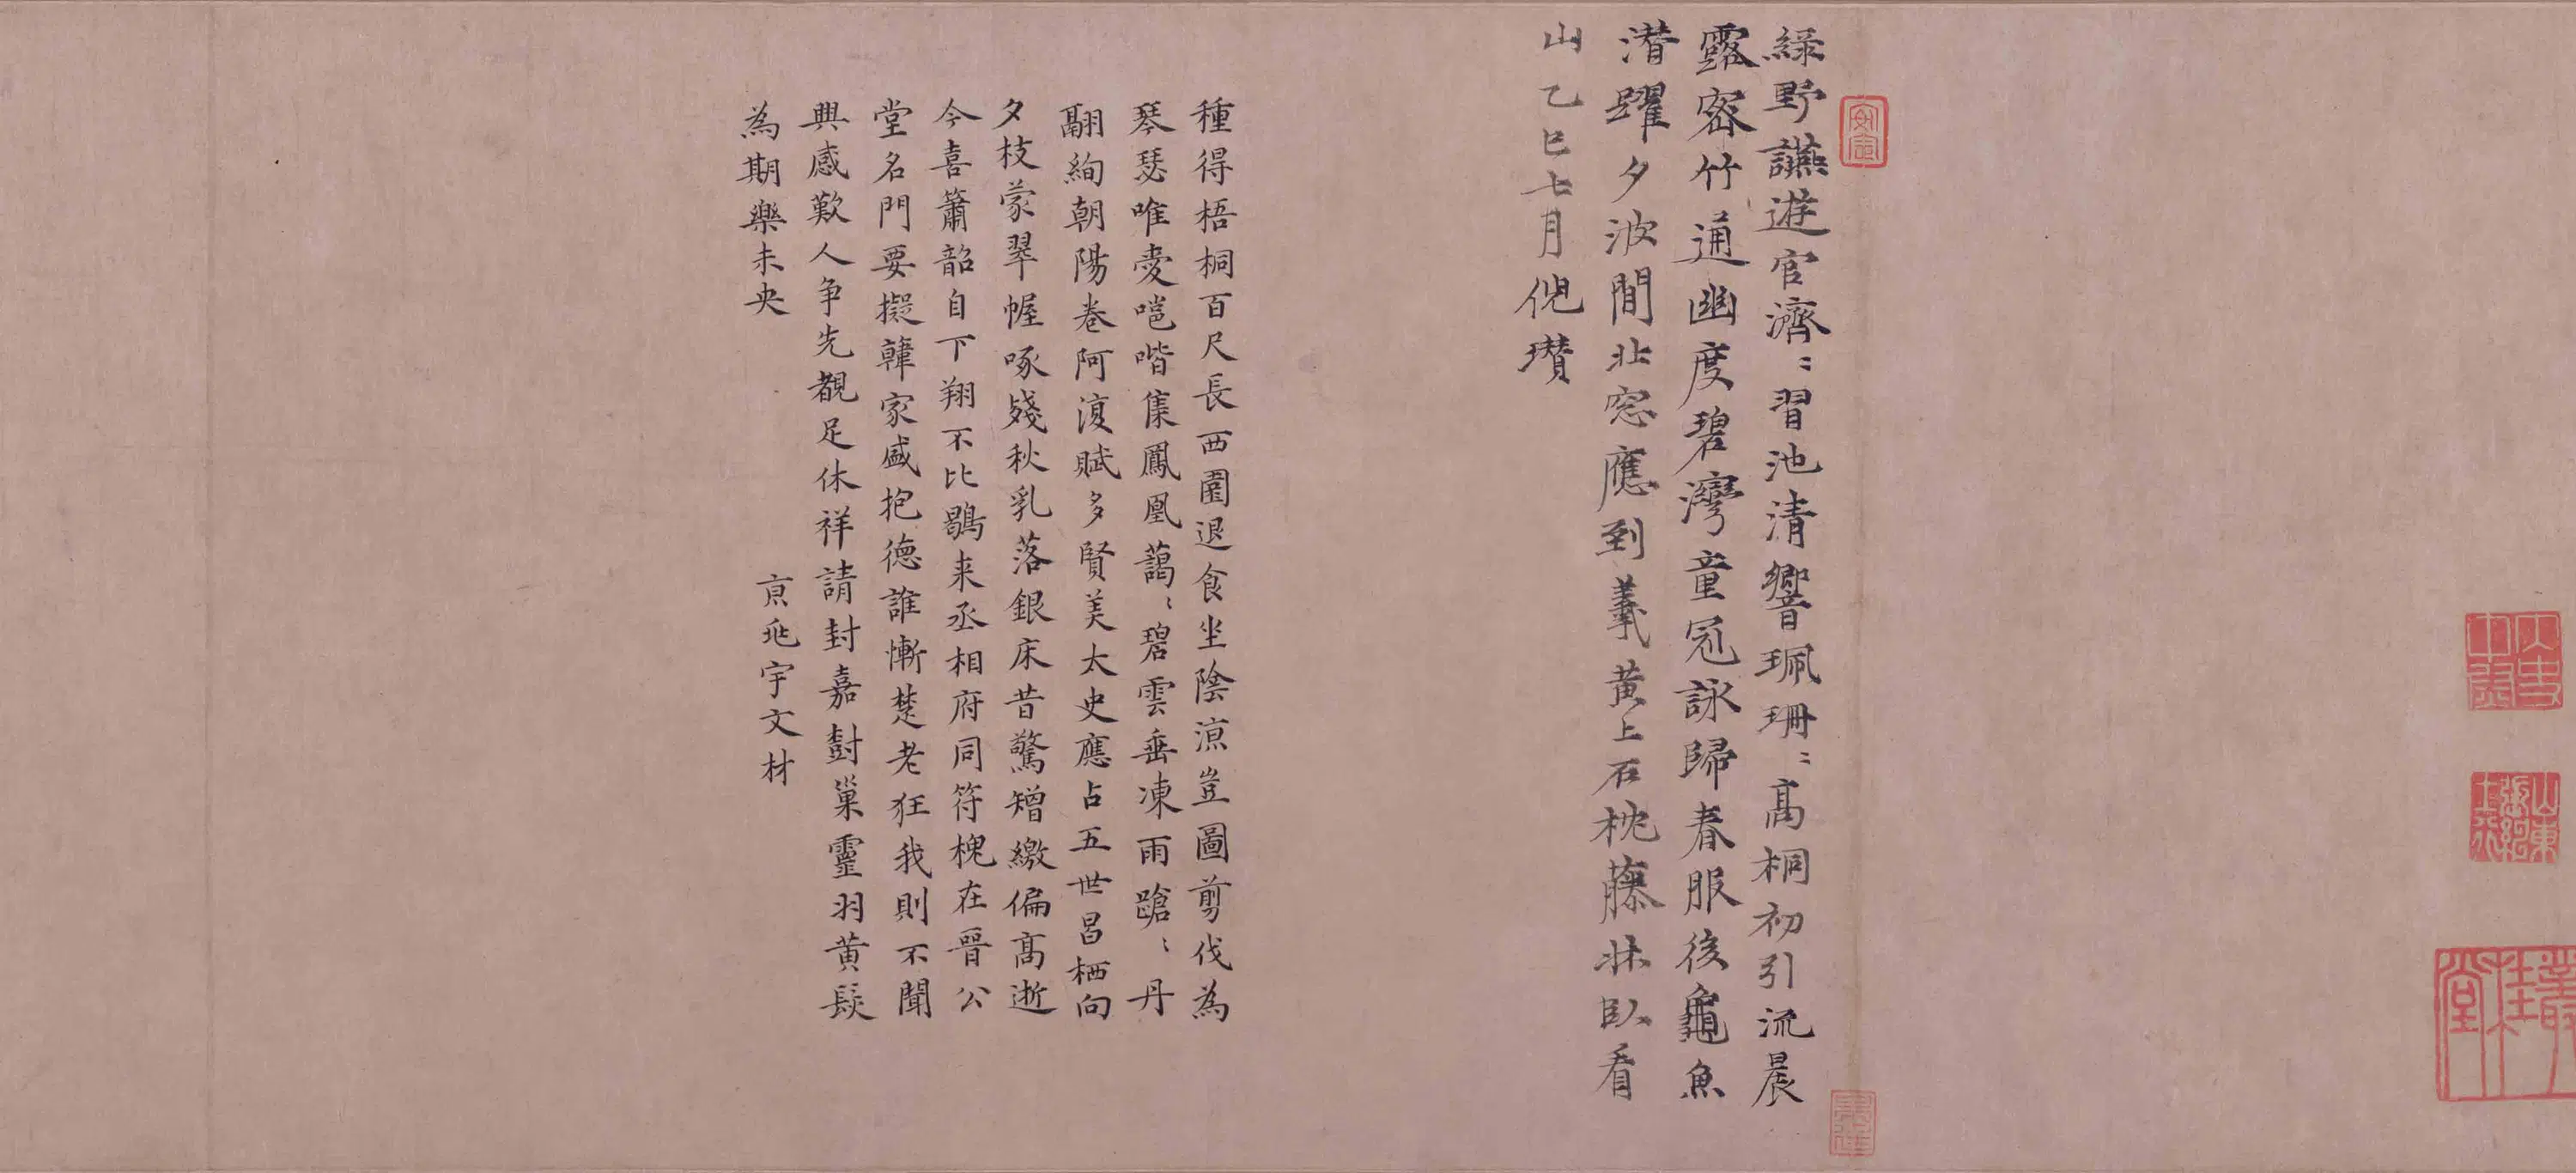 綠野讌遊官濟〻習池清響珮珊〻高桐初引流晨
露密竹通幽度碧灣童冠詠歸春服後龜魚
潛躍夕波閒北窓應到羲黃上石枕藤牀臥看
山乙巳七月倪瓚
種得梧桐百尺長西園退食坐陰涼豈圖剪伐為
琴瑟唯愛嗈喈集鳳凰藹〻碧雲垂凍雨蹌〻丹
翮絢朝陽卷阿復賦多賢美太史應占五世昌栖向
夕枝蒙翠幄啄殘秋乳落銀床昔驚矰繳偏高逝
今喜簫韶自下翔不比鶡来丞相府同符槐在晉公
堂名門要擬韓家盛抱德誰慚楚老狂我則不聞
興感歎人争先覩足休祥請封嘉樹巢靈羽黃髮
為期樂未央
京兆宇文材
安定
叢桂堂